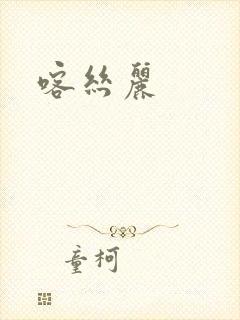 喀絲麗
童柯